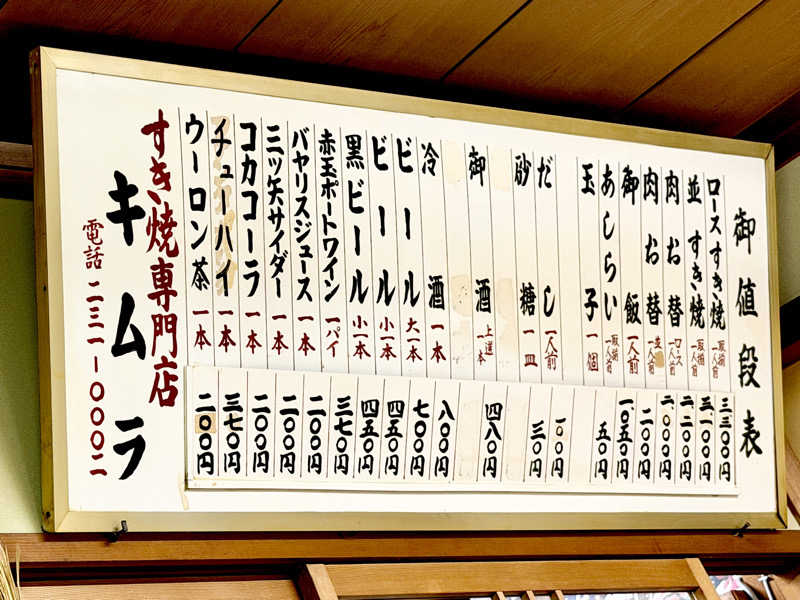 御値段表
ロースすき焼 一人前 三三〇〇円
並すき焼 一人前 三一〇〇円
肉お替 ロース 一人前 二.二〇〇円
肉お替 並 一人前 二.〇〇〇円
御飯 一人前 二〇〇円
あしらい 一人前 一.〇五〇円
玉子 一個 五〇円
だし 一人前 一〇〇円
砂糖 一皿 三〇円
御酒 上選 一本 四八〇円
冷酒 一本 八〇〇円
ビール 大一本 七〇〇円
ビール 小一本 四五〇円
黒ビール 小一本 四五〇円
赤玉ポートワイン 一パイ 三七〇円
バヤリスジュース 一本 二〇〇円
三ツ矢サイダー 一本 二〇〇円
コカコーラ 一本 二〇〇円
チューハイ 一本 三七〇円
ウーロン茶 一本 二〇〇円
すき焼専門店
キムラ
電話 二三一-〇〇〇二